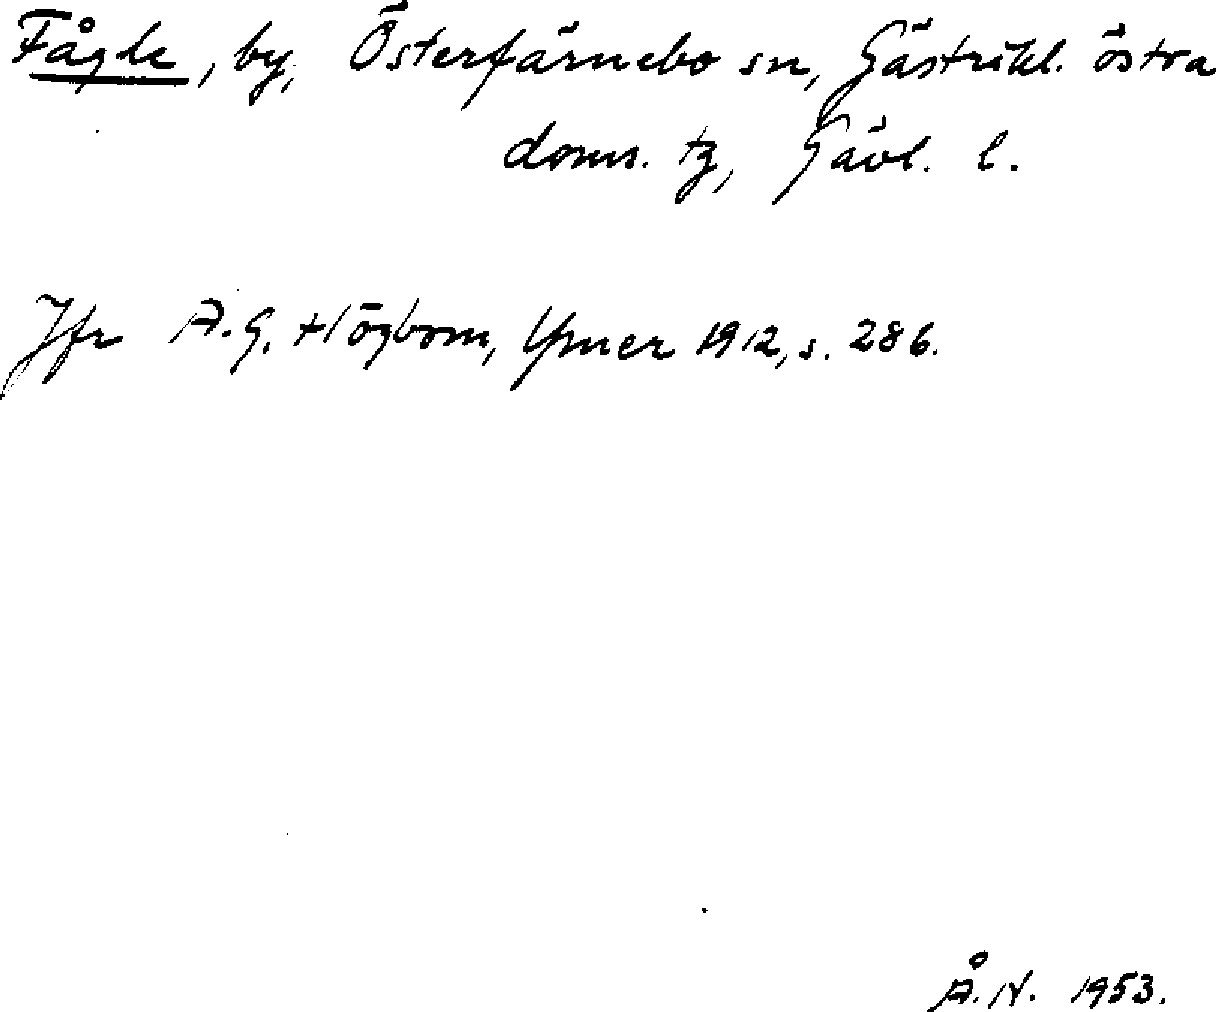 Fågle, by, Österfärnebo sn, Gästrikl. östra
doms. tg, Gävl. l.
Jfr A.G. Högbom, Ymer 1912, s. 286.
Å.N. 1953.